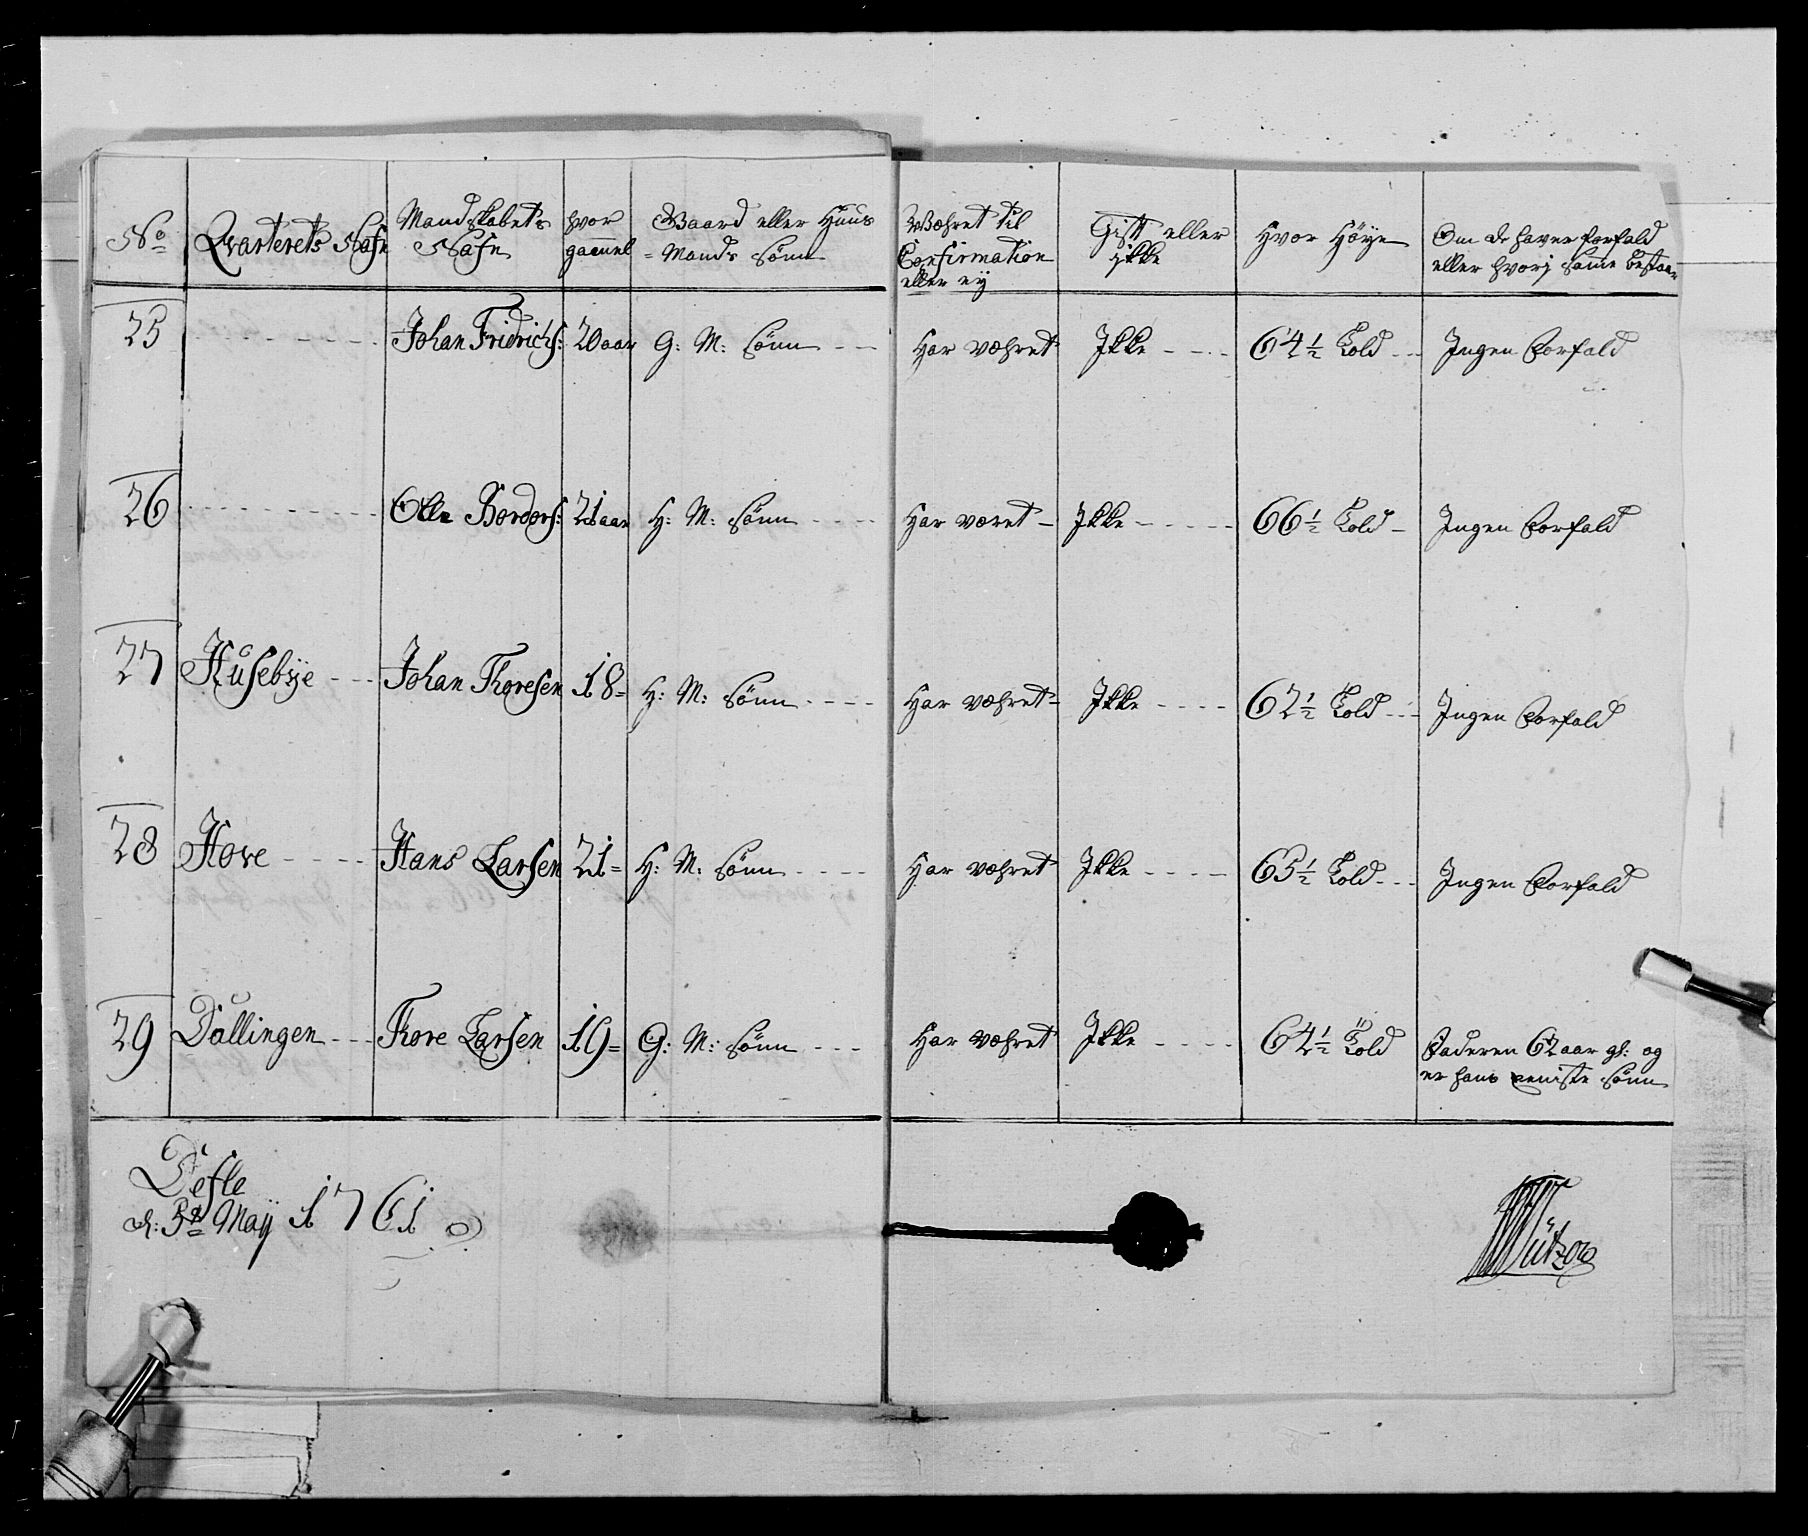 No Qvarterets Nafn Mandskabets Nafn hvor gammel Gaard eller Huus Mands Sønn Wæhret til Confirmation eller ey Gift eller ikke Hvor Høye Om de haver Forfald eller hvorj samme bestaar
25 Johan Fridrichs: 20 aar G: M: Sønn Har wæhret Ikke 64½ Told Ingen Forfald
26 Olle Bordors: 21 aar H: M: Sønn Har wæret Ikke 66½ Told Ingen Forfald
27 Husebye Johan Thoresen 18 = H: M: Sønn Har wæhret Ikke 62½ Told Ingen Forfald
28 Hove Hans Larsen 21 = H: M: Sønn Har wæhret Ikke 65½ Told Ingen Forfald
29 Dallingen Thore Larsen 19 = G: M: Sønn Har wæhret Ikke 64½ Told Faderen 62 aar gl: og
er hans eeniste Sønn
Defle
d: 5te Maij 1761
Lützow